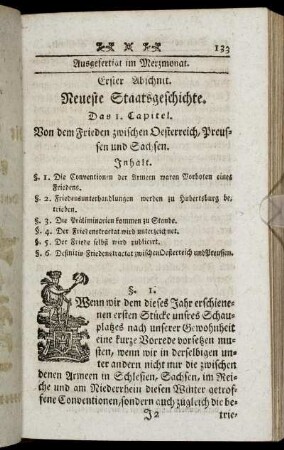 133
Ausgefertigt im Merzmonat.
Erster Abschnit.
Neueste Staatsgeschichte.
Das 1. Capitel.
Von dem Frieden zwischen Oesterreich, Preus-
sen und Sachsen.
Inhalt.
§. 1. Die Conventionen der Armeen waren Vorboten eines
Friedens.
§. 2. Friedensunterhandlungen werden zu Hubertsburg be-
trieben.
§. 3. Die Präliminarien kommen zu Stande.
§. 4. Der Friedenstractat wird unterzeichnet.
§. 5. Der Friede selbst wird publicirt.
§. 6. Definitiv-Friedenstractat zwischen Oesterreich und Preussen.
§. 1.
Wenn wir dem dieses Jahr erschiene-
nen ersten Stücke unsres Schau-
platzes nach unserer Gewohnheit
eine kurze Vorrede vorsetzen mus-
sten, wenn wir in derselbigen un-
ter andern nicht nur die zwischen
denen Armeen in Schlesien, Sachsen, im Rei-
che und am Niederrhein diesen Winter getrof-
fene Conventionen, sondern auch zugleich die be-
J2 trie-